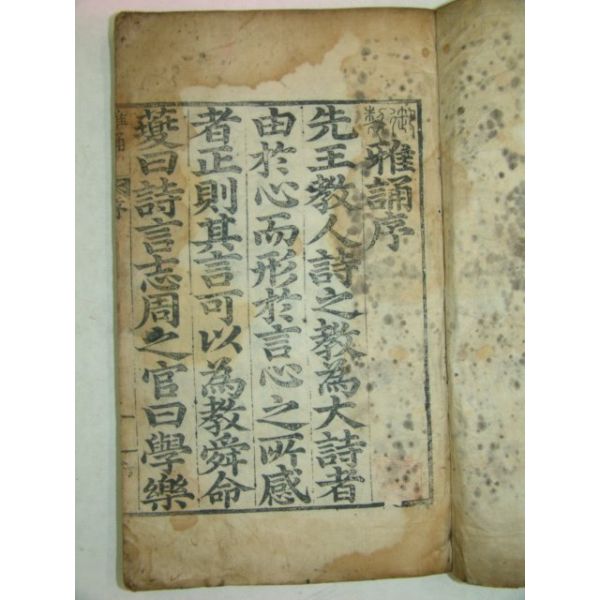 御製雅誦序
先王教人詩之教為大詩者
由於心而形於言心之所感
者正則其言可以為教舜命
夔曰詩言志周之官曰學樂
雅誦 序 一